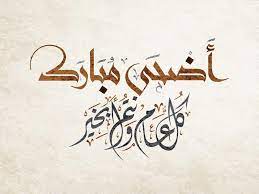 أَضْحَى مُبَارَك
كُلُّ عَامٍ وَأَنْتُمْ بِخَيْرٍ